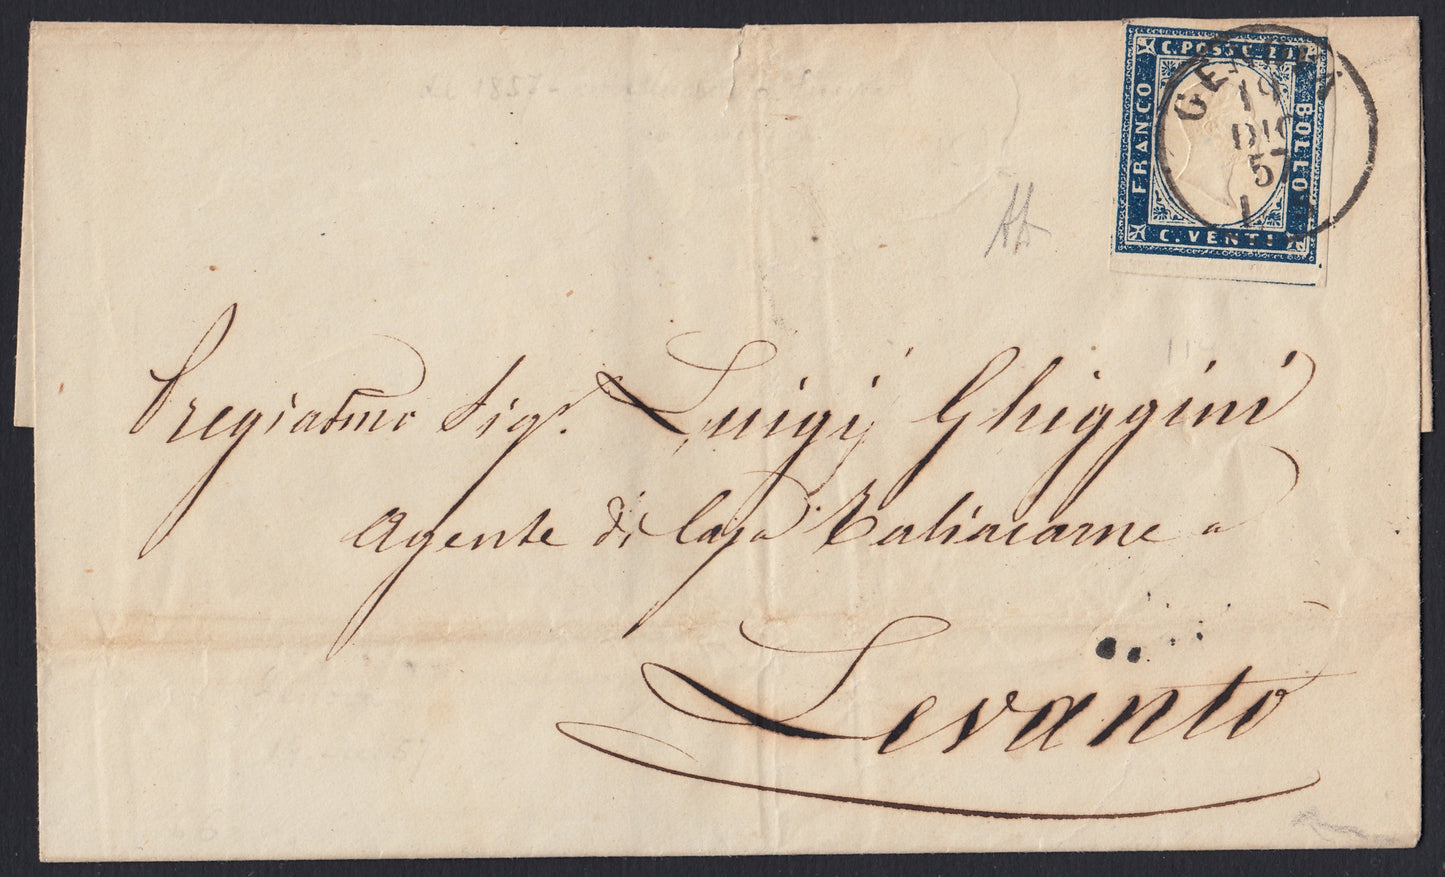 C. POSTE 20
FRANCO
BOLLO
C. VENTI
GENOVA
19
DIC
57
Pregiatmo Sigr. Luigi Ghiggini
Agente di Casa Taliacarne a
Levanto